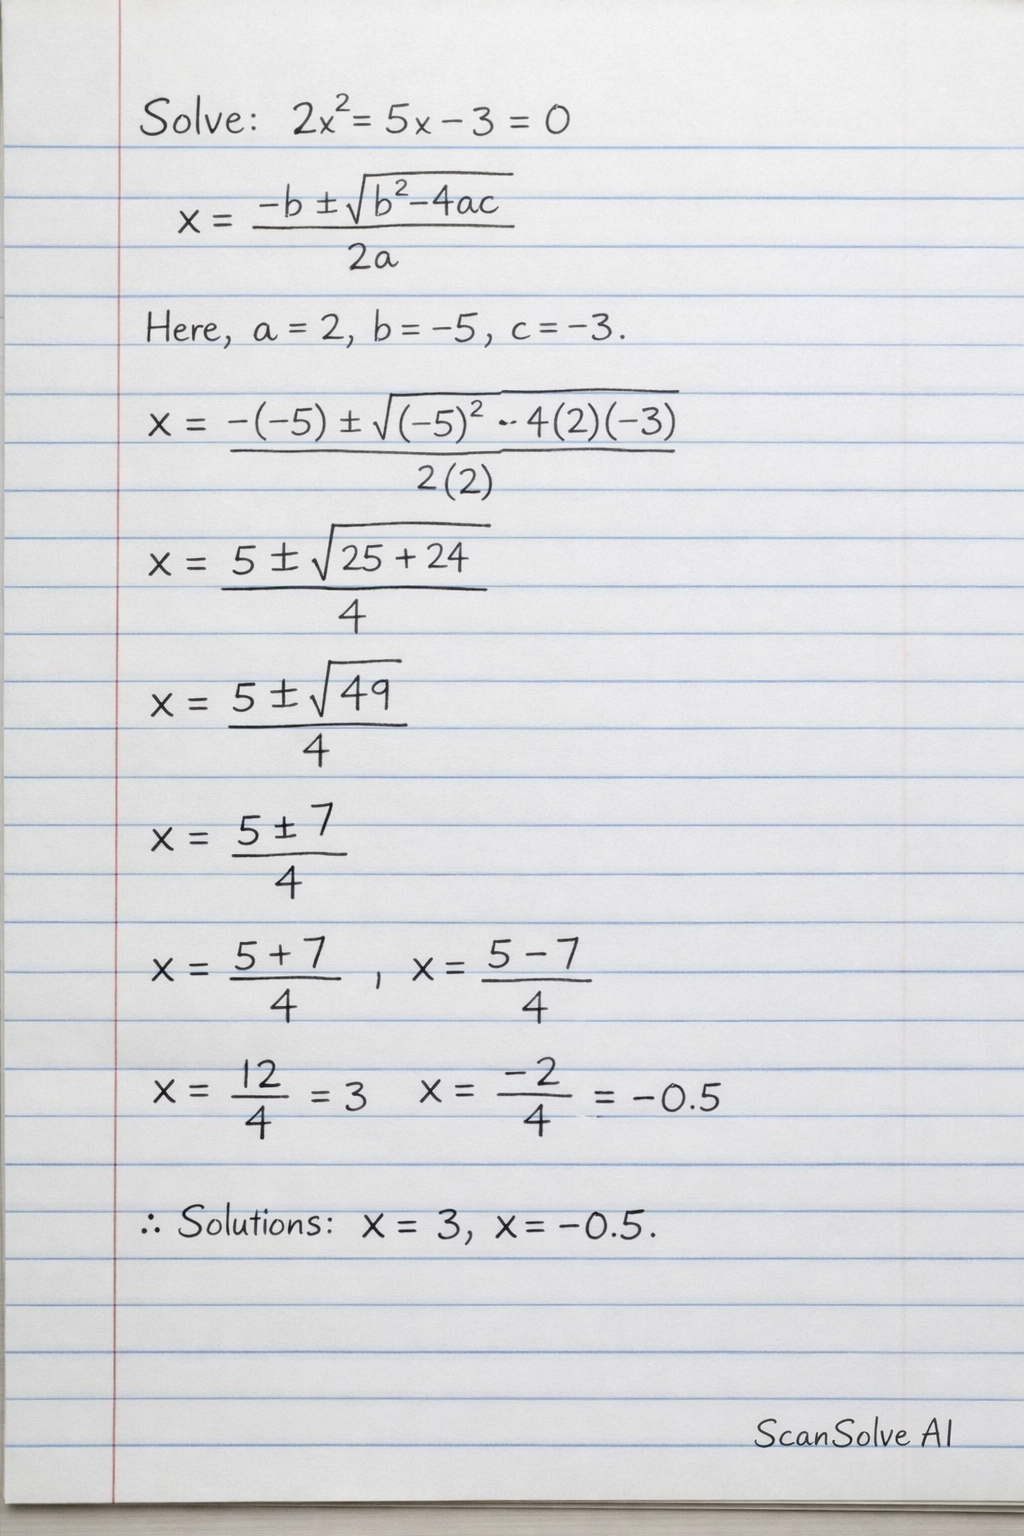 Solve: 2x²= 5x − 3 = 0
x = (−b ± √(b²−4ac)) / 2a
Here, a = 2, b = −5, c = −3.
x = (−(−5) ± √((−5)² -- 4(2)(−3))) / 2(2)
x = (5 ± √(25 + 24)) / 4
x = (5 ± √49) / 4
x = (5 ± 7) / 4
x = (5 + 7) / 4 , x = (5 − 7) / 4
x = 12/4 = 3 x = −2/4 = −0.5
∴ Solutions: x = 3, x = −0.5.
ScanSolve AI